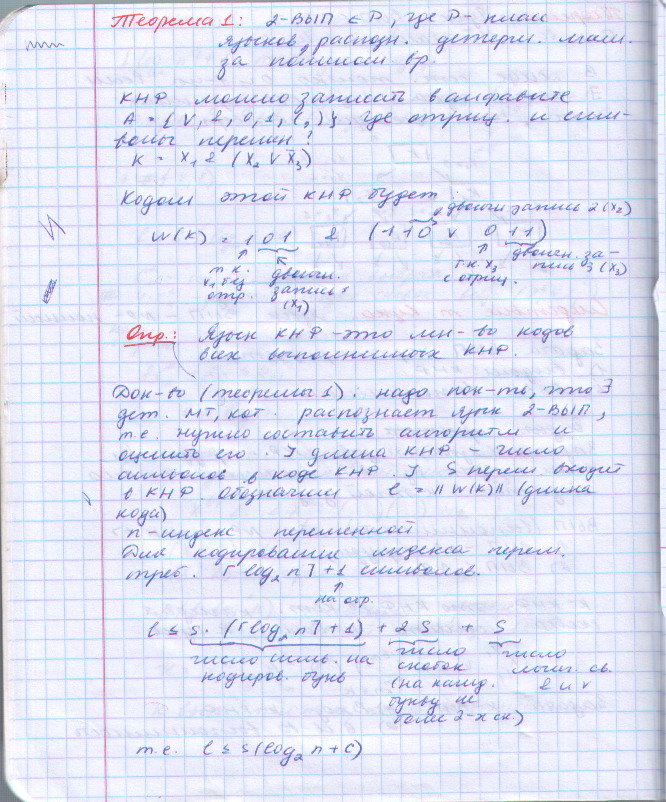 Теорема 1: 2-ВЫП ∈ P, где P - класс
языков, распозн. детерм. маш.
за полином вр.
КНФ можно записать в алфавите
A = {∨, &, 0, 1, (, )}, где отриц. и сим-
волы перемен?
K = X₁ & (X₂ ∨ X̄₃)
Кодом этой КНФ будет
двоичн запись 2 (X₂)
W(K) = 1 0 1 & (1 1 0 ∨ 0 1 1)
т.к. двоичн. т.к. X₃ двоичн. за-
X₁ без запись 1 с отриц. пись 3 (X₃)
отр. (X₁)
Опр.: Язык КНФ - это мн-во кодов
всех выполнимых КНФ.
Док-во (теоремы 1): надо пок-ть, что ∃
дет. МТ, кот. распознает язык 2-ВЫП,
т.е. нужно составить алгоритм и
оценить его. ] длина КНФ - число
символов в коде КНФ. ] S перем входит
в КНФ. Обозначим l = ||W(K)|| (длина
кода)
n - индекс переменной
Для кодирования индекса перем.
треб. ⌈log₂ n⌉ + 1 символов.
на отр.
l ≤ S · (⌈log₂ n⌉ + 1) + 2S + S
число симв. на число число
кодиров. букв скобок логич. св.
(на кажд. & и ∨
букву не
более 2-х ск.)
т.е. l ≤ S(log₂ n + C)